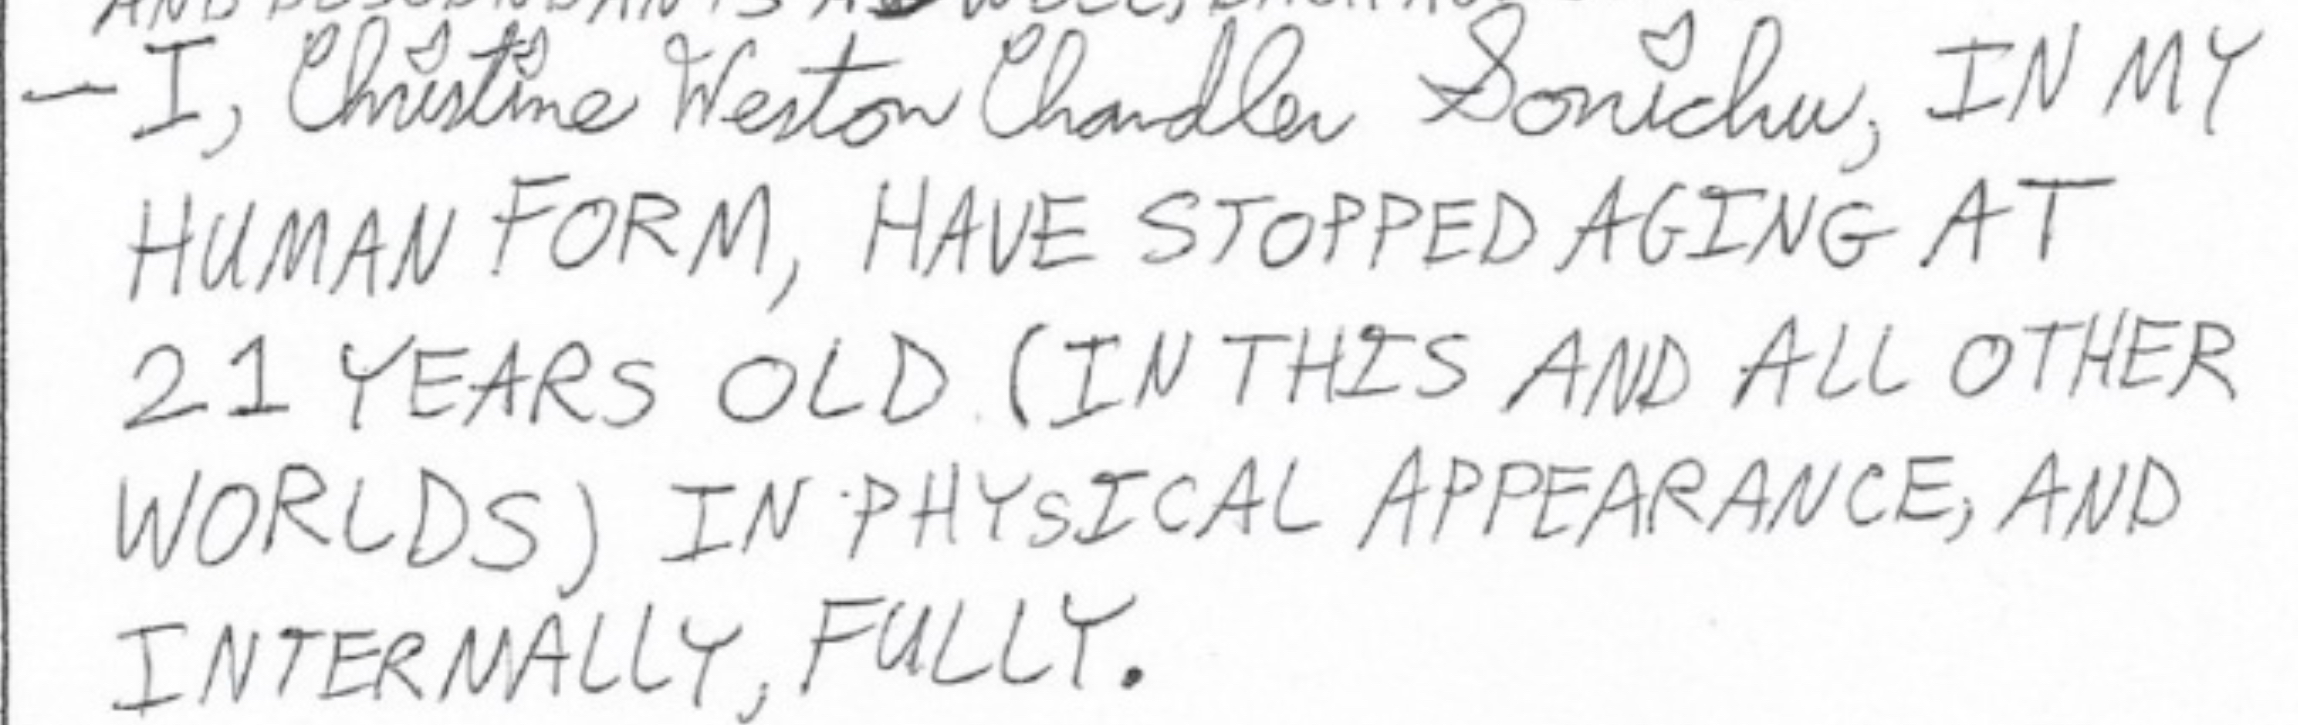 AND DESCENDANTS AS WELL,
—I, Christine Weston Chandler Sonichu, IN MY
HUMAN FORM, HAVE STOPPED AGING AT
21 YEARS OLD (IN THIS AND ALL OTHER
WORLDS) IN PHYSICAL APPEARANCE, AND
INTERNALLY, FULLY.